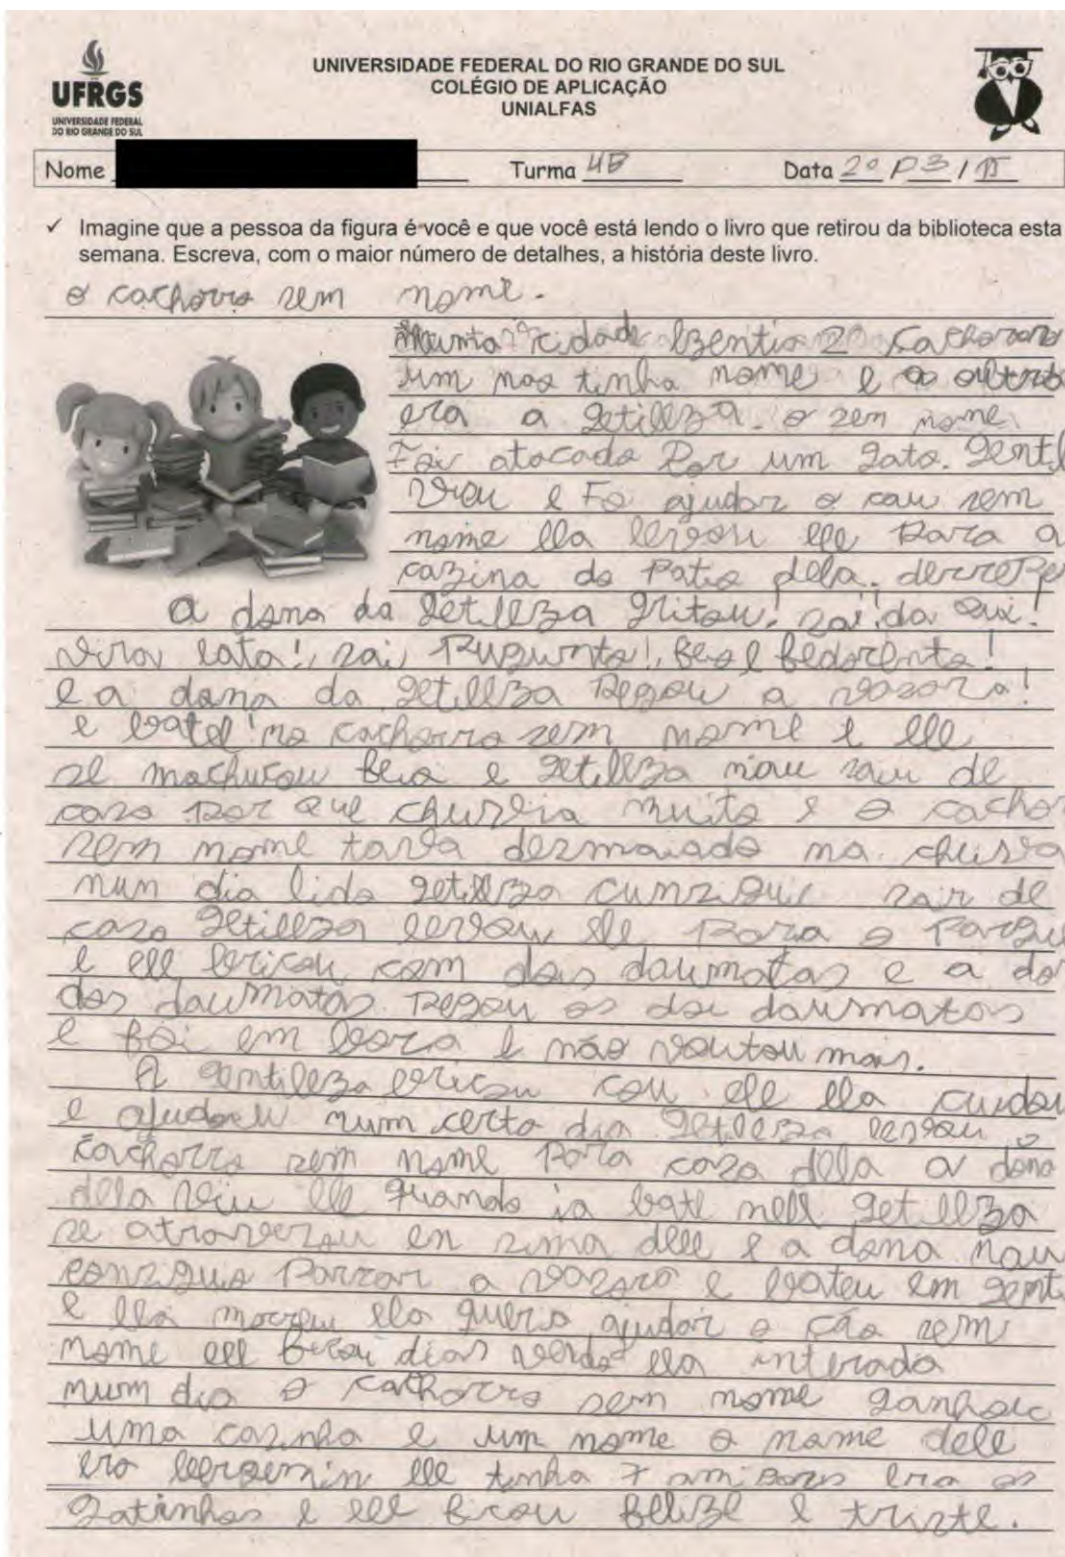 UFRGS
UNIVERSIDADE FEDERAL
DO RIO GRANDE DO SUL
UNIVERSIDADE FEDERAL DO RIO GRANDE DO SUL
COLÉGIO DE APLICAÇÃO
UNIALFAS
Nome Turma 4B Data
✓ Imagine que a pessoa da figura é você e que você está lendo o livro que retirou da biblioteca esta
semana. Escreva, com o maior número de detalhes, a história deste livro.
o cachorro sem nome.
cidade 2 cachorros
um nao tinha nome e o
era a getileza. o sem nome
Foi atacado Por um gato. gentil
viou e Foi ajudar o cau sem
nome ela levou ele para a
cazina do patio dela. derrepe
a dona da getileza gritou! sai! da qui!
vira lata! sai feo e fedorento!
e a dona da getileza pegou a vasora!
e bateu no cachorro sem nome e ele
se machucou feio e getileza nau sau de
casa por que chuvia muito e o cachor
sem nome tava dezmaiado na chuva
num dia lido getileza cunziguil sair de
casa getileza levou ele para o parque
e ele bricou com dois daumatas e a do
dos daumatas pegou os doi daumatas
e foi em bora e não voutou mais.
A gentileza bricou cou ele ela cuidou
e ajudou num certo dia getileza levou o
cachorro sem nome para casa dela a dona
dela viu ele quando ia bate nele getileza
se atraverzou en zima dele e a dona nau
conziguio parrar a vazoro e bateu em genti
e ela morreu ela queria ajudar o cão sem
nome ele ficou dias vendo ela interada
num dia o cachorro sem nome ganhou
uma casinha e um nome o nome dele
era ele tinha 7 era os
gatinhos e ele ficou felize e triste.